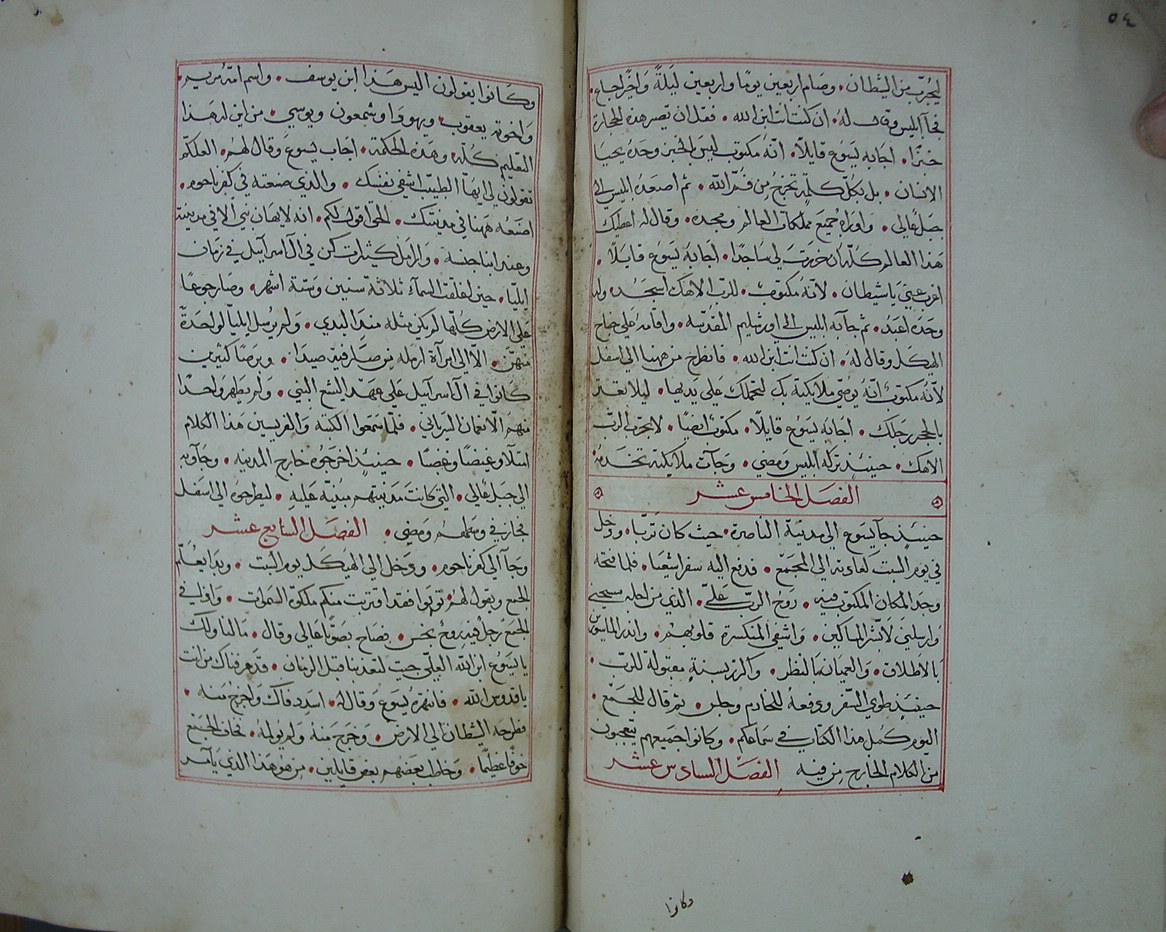 ٥٤
ليجرب من الشيطان. وصام اربعين يومًا واربعين ليلةً واخيرًا جاع.
فجآ ابليس وقال له. ان كنت انت ابن الله. فقل ان تصير هذه الحجارة
خبزًا. اجابه يسوع قايلاً. انه مكتوب ليس بالخبز وحده يحيا
الانسان. بل بكل كلمة تخرج من فم الله. ثم اصعده ابليس الى
جبل عالي. واوراه جميع مملكات العالم ومجده. وقال له اعطيك
هذا العالم كله ان خررت لي ساجدًا. اجابه يسوع قايلاً.
اغرب عني يا شيطان. لانه مكتوب. للرب الاهك اسجد. وله
وحده اعبد. ثم جآ به ابليس الى اورشليم المقدسة. واقامه على جناح
الهيكل وقال له. ان كنت انت ابن الله. فانطرح من ههنا الى اسفل
لانه مكتوب انه يوصي ملايكته بك لتحملك على يديها. ليلا تعثر
بالحجر رجلك. اجابه يسوع قايلاً. مكتوب ايضًا. لا تجرب الرب
الاهك. حينيذ تركه ابليس ومضى. وجآت ملايكته تخدمه
الفصل الخامس عشر
حينيذ جآ يسوع الى مدينة الناصرة. حيث كان تربا. ودخل
في يوم السبت كعادته الى المجمع. فدفع اليه سفر اشعيا. فلما فتحه
وجد المكان المكتوب فيه. روح الرب علي. الذي من اجله مسحني
وارسلني لابشر المساكين. واشفي المنكسرة قلوبهم. وانذر الماسورين
بالاطلاق. والعميان بالنظر. واكرز بسنة مقبولة للرب.
حينيذ طوى السفر ودفعه للخادم وجلس. ثم قال للجمع.
اليوم كمل هذا الكتاب في سماعكم. وكانوا جميعهم يتعجبون
من الكلام الخارج من فيه الفصل السادس عشر
وكانوا
وكانوا يقولون اليس هذا ابن يوسف. واسم امه مريم.
واخوته يعقوب ويهودا وشمعون ويوسي. من اين له هذا
التعليم كله وهذه الحكمة. اجاب يسوع وقال لهم. العلكم
تقولون لي ايها الطبيب اشفي نفسك. والذي صنعته في كفرناحوم.
اصنعه ههنا في مدينتك. الحق اقول لكم. انه لا يهان نبي الا في مدينته
وعند ابنا جنسه. وارامل كثيرات كن في آل اسرآييل في زمان
ايليا. حين اغلقت السمآء ثلاثة سنين وستة اشهر. وصار جوعًا
على الارض كلها لم يكن مثله منذ البدي. ولم يرسل ايليا لواحدة
منهن. الا الى امرآة ارملة من صارفية صيدا. وبرصًا كثيرين
كانوا في آل اسرآييل على عهد اليشع النبي. ولم يطهر واحدًا
منهم الا نعمان السرياني. فلما سمعوا الكتبة والفريسين هذا الكلام
امتلاو غيضًا وغصبًا. حينيذ اخرجوه خارج المدينة. وجآو به
الى جبل عالي. التي كانت مدينتهم مبنية عليه. ليطرحوه الى اسفل
فجاز في وسطهم ومضى. الفصل السابع عشر
وجآ الى كفرناحوم. ودخل الى الهيكل يوم السبت. وبدا يعلم
الجمع ويقول لهم توبوا فقد اقتربت منكم ملكوة السموات. وافا في
المجمع رجل فيه روح نجس. فصاح بصوتًا عالى وقال. ما لنا ولك
يا يسوع ابن الله العلي جيت لتعذبنا قبل الزمان. قد عرفناك من انت
يا قدوس الله. فانتهره يسوع وقال له. اسدد فاك واخرج منه.
فطرحه الشيطان الى الارض. وخرج منه ولم يولمه. فخاف الجمع
خوفًا عظيمًا. وخاطب بعضهم بعض قايلين. من هو هذا الذي يامر